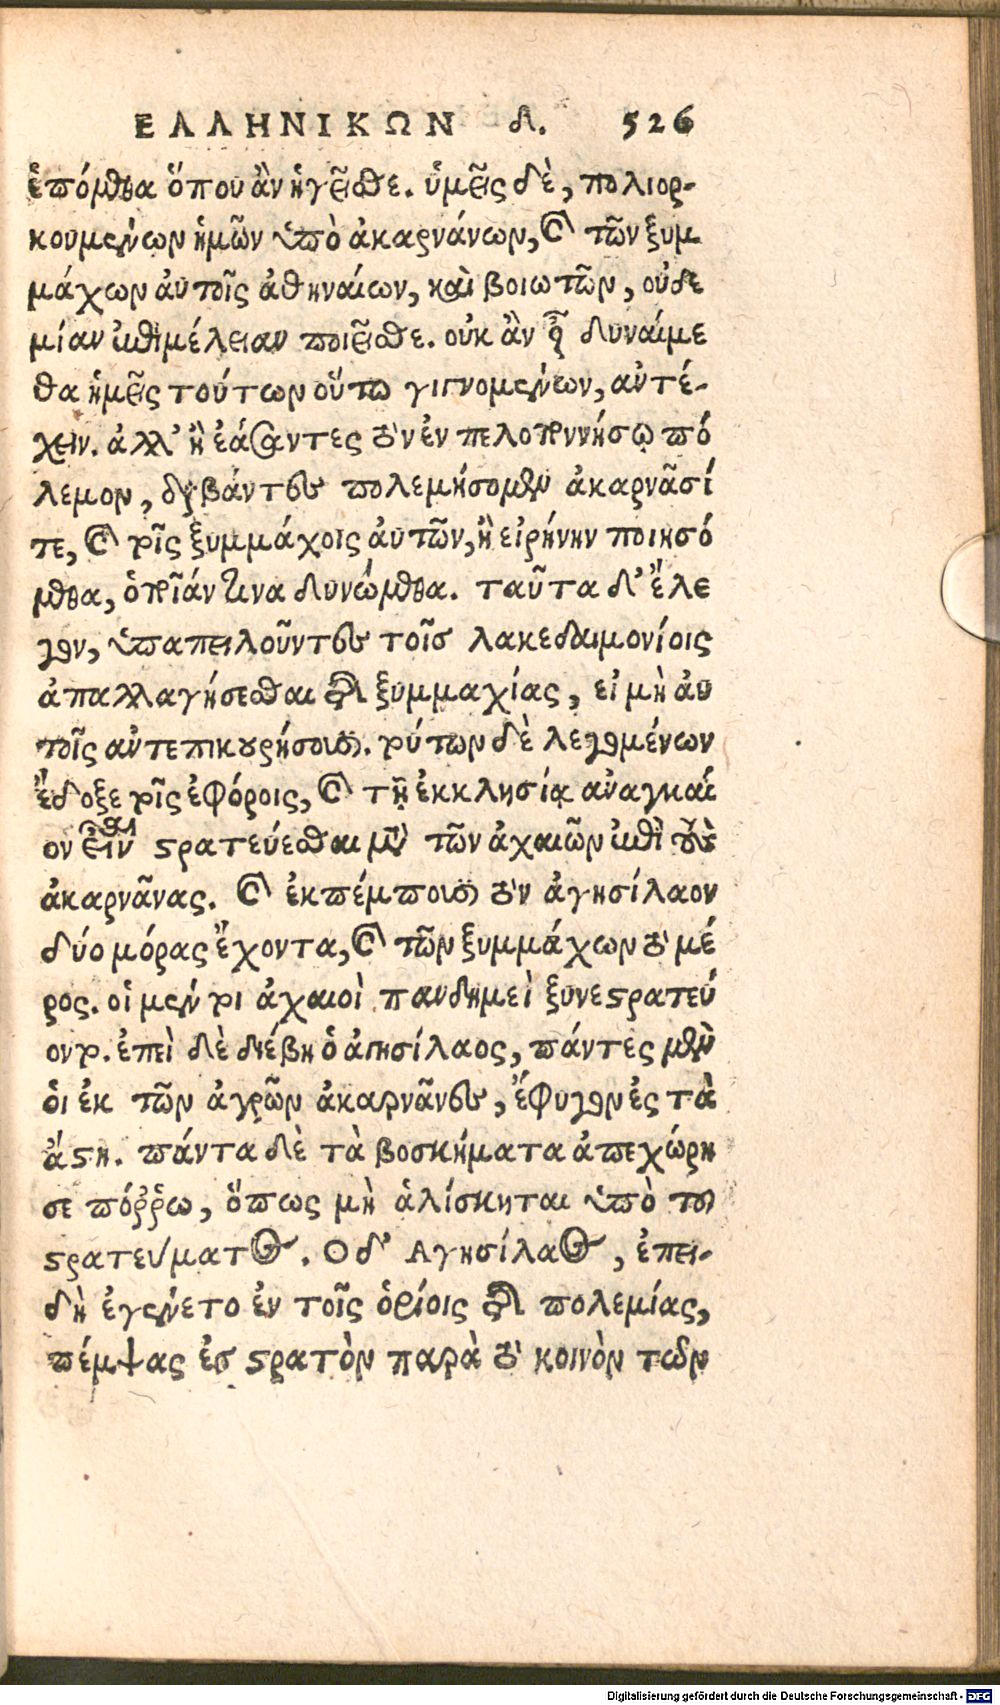 ΕΛΛΗΝΙΚΩΝ δ. 526
ἑπόμεθα ὅπου ἂν ἡγεῖσθε. ὑμεῖς δὲ, πολιορ-
κουμένων ἡμῶν ὑπὸ ἀκαρνάνων, καὶ τῶν ξυμ
μάχων αὐτοῖς ἀθηναίων, καὶ βοιωτῶν, οὐδε
μίαν ἐπιμέλειαν ποιεῖσθε. οὐκ ἂν οὖν δυναίμε
θα ἡμεῖς τούτων οὕτω γιγνομένων, αντέ-
χειν. ἀλλ' ἢ ἐάσαντες τὸν ἐν πελοποννήσῳ πό
λεμον, διαβάντες πολεμήσομεν ἀκαρνᾶσί
τε, καὶ τοῖς ξυμμάχοις αὐτῶν, ἢ εἰρήνην ποιησό
μεθα, ὁποῖάν τινα δυνώμεθα. ταῦτα δ' ἔλε
γον, ὑπαπειλοῦντες τοῖς λακεδαιμονίοις
ἀπαλλαγήσεσθαι τῆς ξυμμαχίας, εἰ μὴ αὐ
τοῖς αντεπικουρήσουσι. τούτων δὲ λεγομένων
ἔδοξε τοῖς ἐφόροις, καὶ τῇ ἐκκλησίᾳ αναγκαῖ
ον εἶναι στρατεύεσθαι μετὰ τῶν ἀχαιῶν ἐπὶ τοὺς
ἀκαρνᾶνας. καὶ ἐκπέμπουσι τὸν ἀγησίλαον
δύο μόρας ἔχοντα, καὶ τῶν ξυμμάχων τὸ μέ
ρος. οἱ μέν τοι ἀχαιοὶ πανδημεὶ ξυνεστρατεύ
οντο. ἐπεὶ δὲ διέβη ὁ ἀγησίλαος, πάντες μὲν
ὁι ἐκ τῶν ἀγρῶν ἀκαρνᾶνες, ἔφυγον ἐς τὰ
ἄστη. πάντα δὲ τὰ βοσκήματα ἀπεχώρη
σε πόῤῥω, ὅπως μὴ ἁλίσκηται ὑπὸ τοῦ
στρατεύματος. Ο δ' Αγησίλαος, ἐπει-
δὴ ἐγένετο ἐν τοῖς ὁρίοις τῆς πολεμίας,
πέμψας ἐς στρατὸν παρὰ τὸ κοινὸν τῶν
Digitalisierung gefördert durch die Deutsche Forschungsgemeinschaft - DFG